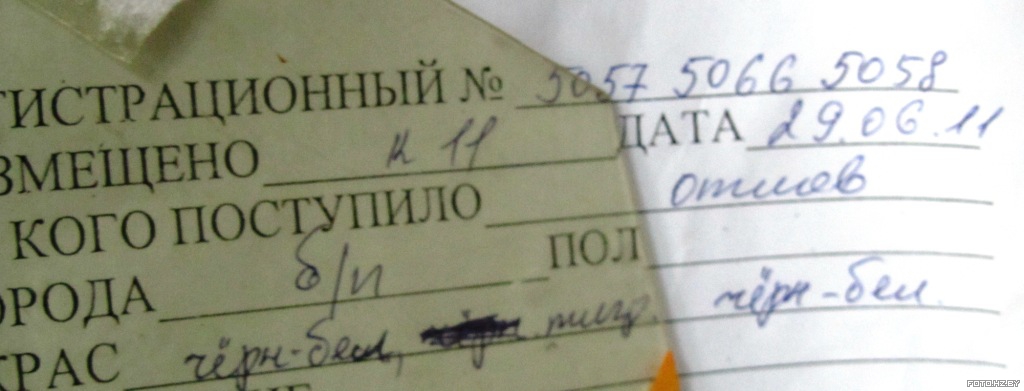 ГИСТРАЦИОННЫЙ № 5057 5066 5058
ЗМЕЩЕНО к 11 ДАТА 29.06.11
КОГО ПОСТУПИЛО отлов
ОРОДА б/п ПОЛ
КРАС чёрн-бел, тигр. чёрн-бел
FOTO.HZ.BY